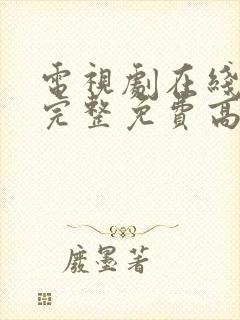 電視劇在綫
完整免費高
廢墨著